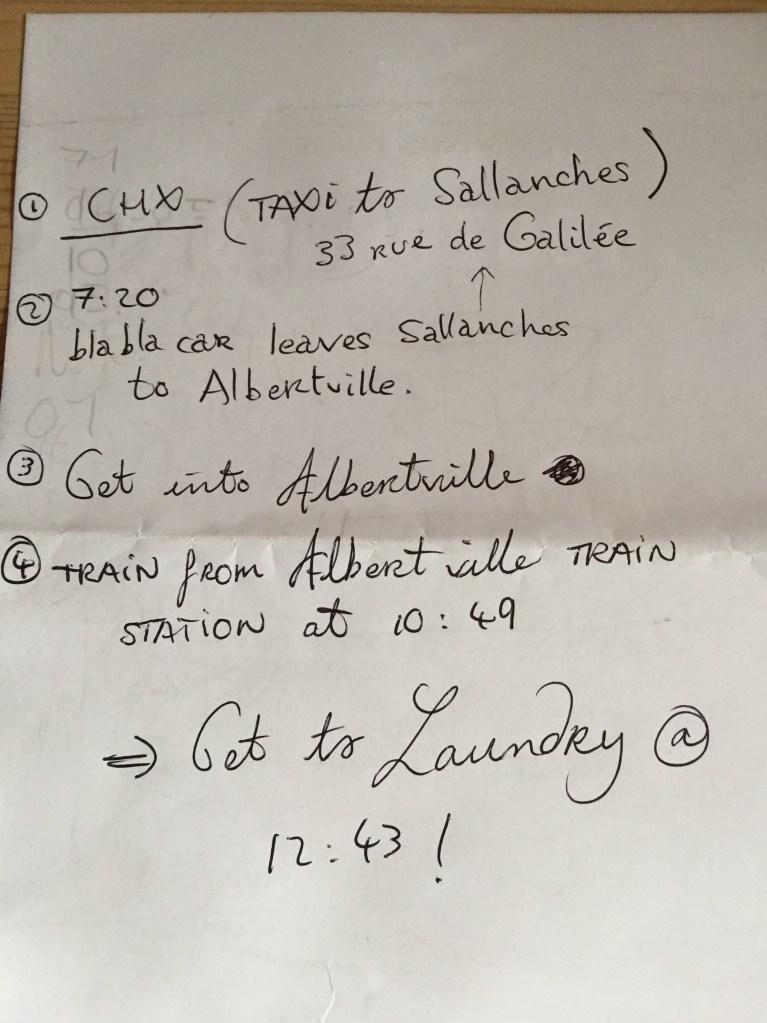 ① CHX (TAXi to Sallanches)
33 rue de Galilée
↑
② 7:20
bla bla car leaves Sallanches
to Albertville.
③ Get into Albertville
④ TRAiN from Albertville TRAiN
STATiON at 10:49
⇒ Get to Laundry @
12:43!